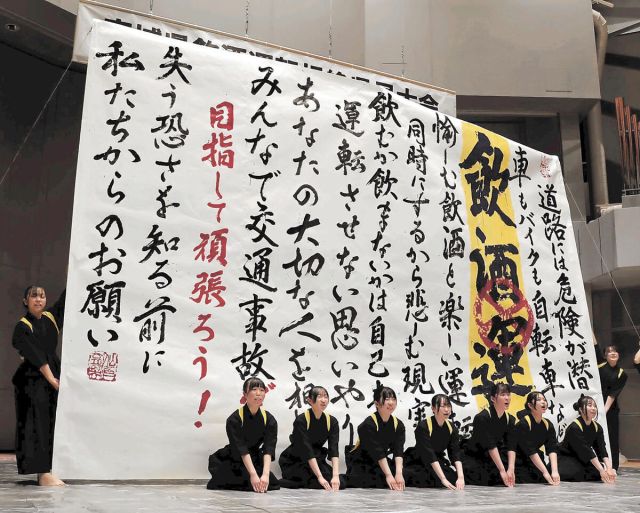 道路には危険が潜
車もバイクも自転車など
飲酒運
愉しむ飲酒と楽しい運転
同時にするから悲しむ現実
飲むか飲まないかは自己
運転させない思いやり
あなたの大切な人を
みんなで交通事故
目指して頑張ろう!
失う恐さを知る前に
私たちからのお願い